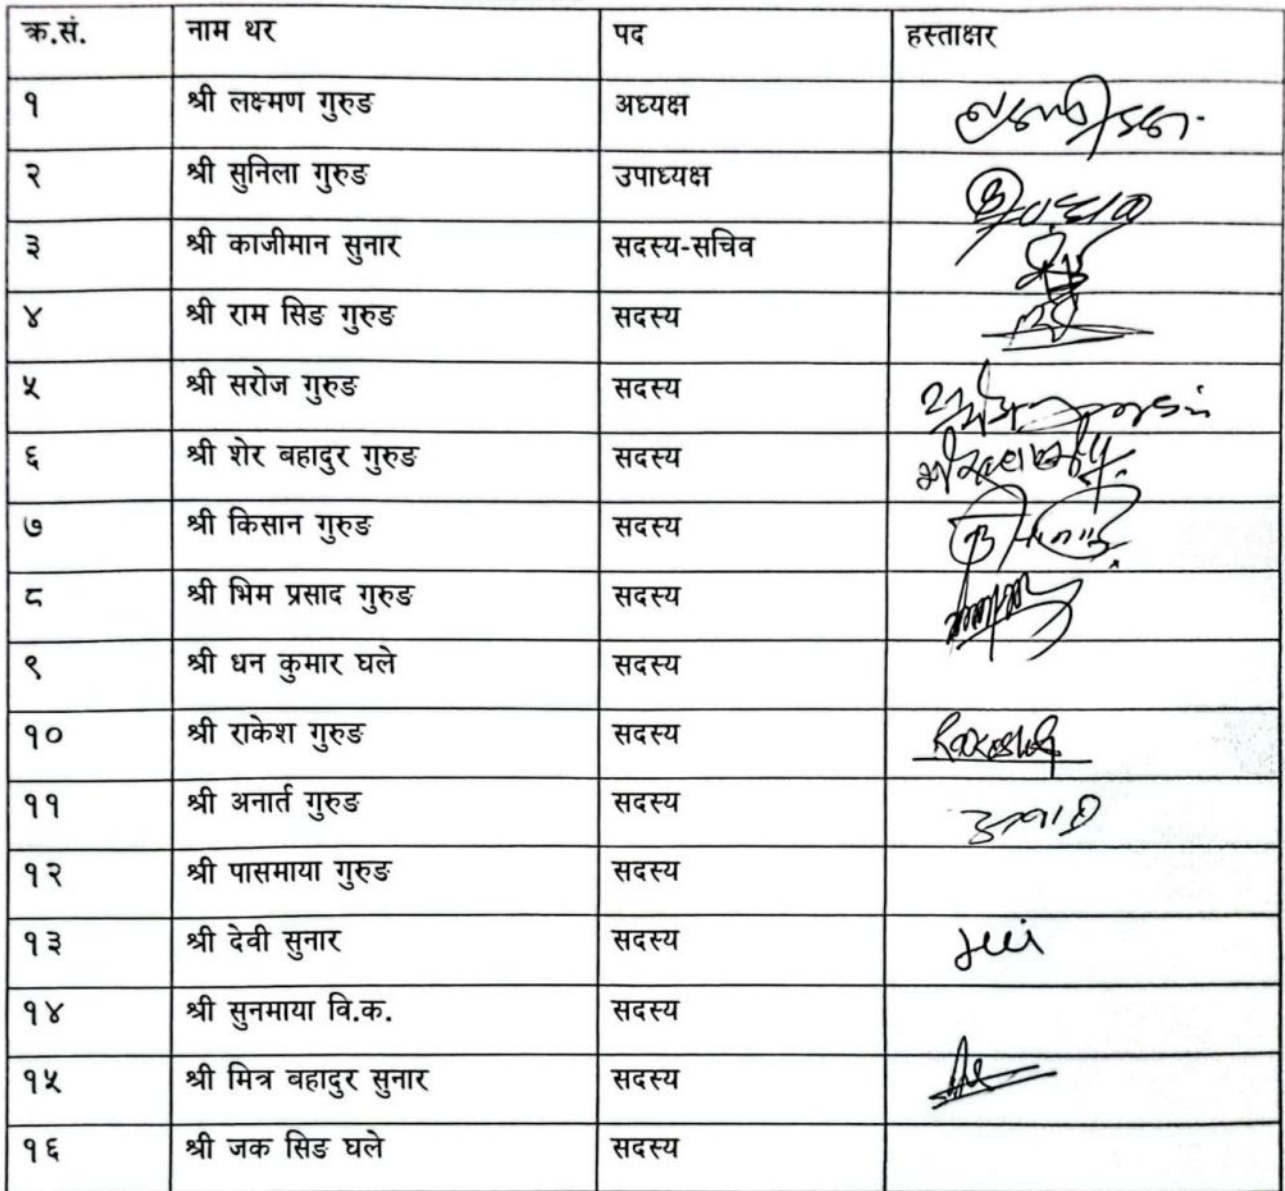 क्र.सं. नाम थर पद हस्ताक्षर
१ श्री लक्ष्मण गुरुङ अध्यक्ष
२ श्री सुनिला गुरुङ उपाध्यक्ष
३ श्री काजीमान सुनार सदस्य-सचिव
४ श्री राम सिङ गुरुङ सदस्य
५ श्री सरोज गुरुङ सदस्य
६ श्री शेर बहादुर गुरुङ सदस्य
७ श्री किसान गुरुङ सदस्य
८ श्री भिम प्रसाद गुरुङ सदस्य
९ श्री धन कुमार घले सदस्य
१० श्री राकेश गुरुङ सदस्य
११ श्री अनार्त गुरुङ सदस्य
१२ श्री पासमाया गुरुङ सदस्य
१३ श्री देवी सुनार सदस्य
१४ श्री सुनमाया वि.क. सदस्य
१५ श्री मित्र वहादुर सुनार सदस्य
१६ श्री जक सिङ घले सदस्य